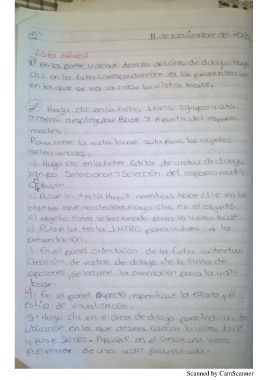 11 de Noviembre del
Vista general
1 en la parte inferior derecha del área de dibujo, haga
clic en la ficha correspondiente a la presentación
en la que se va a crear la vista base.
2 Haga clic en la ficha Inicio > grupo vista
> menú desplegable Base > A partir del espacio
modelo.
Para crear la vista base solo para los objetos
seleccionados.
a. Haga clic en la ficha Editor de vistas de dibujo
> grupo Seleccionar > Selección del espacio modelo
Buscar.
b. Pulse la tecla Mayús mientras hace clic en los
objetos que no desea, haga clic en el objeto.
el objeto Están seleccionados para la vista base.
d. Pulse la tecla INTRO para volver a la
presentación.
3. En el panel orientación de la ficha contextual
Creación de vistas de dibujo de la cinta de
opciones, seleccione la orientación para la vista
base.
4. En el panel Aspecto, especifique la escala y el
estilo de visualización.
5. Haga clic en el área de dibujo para indicar la
ubicación en la que desea colocar la vista base
y pulse INTRO. Aparece en el cursor una vista
preliminar de una vista proyectada.
Scanned by CamScanner